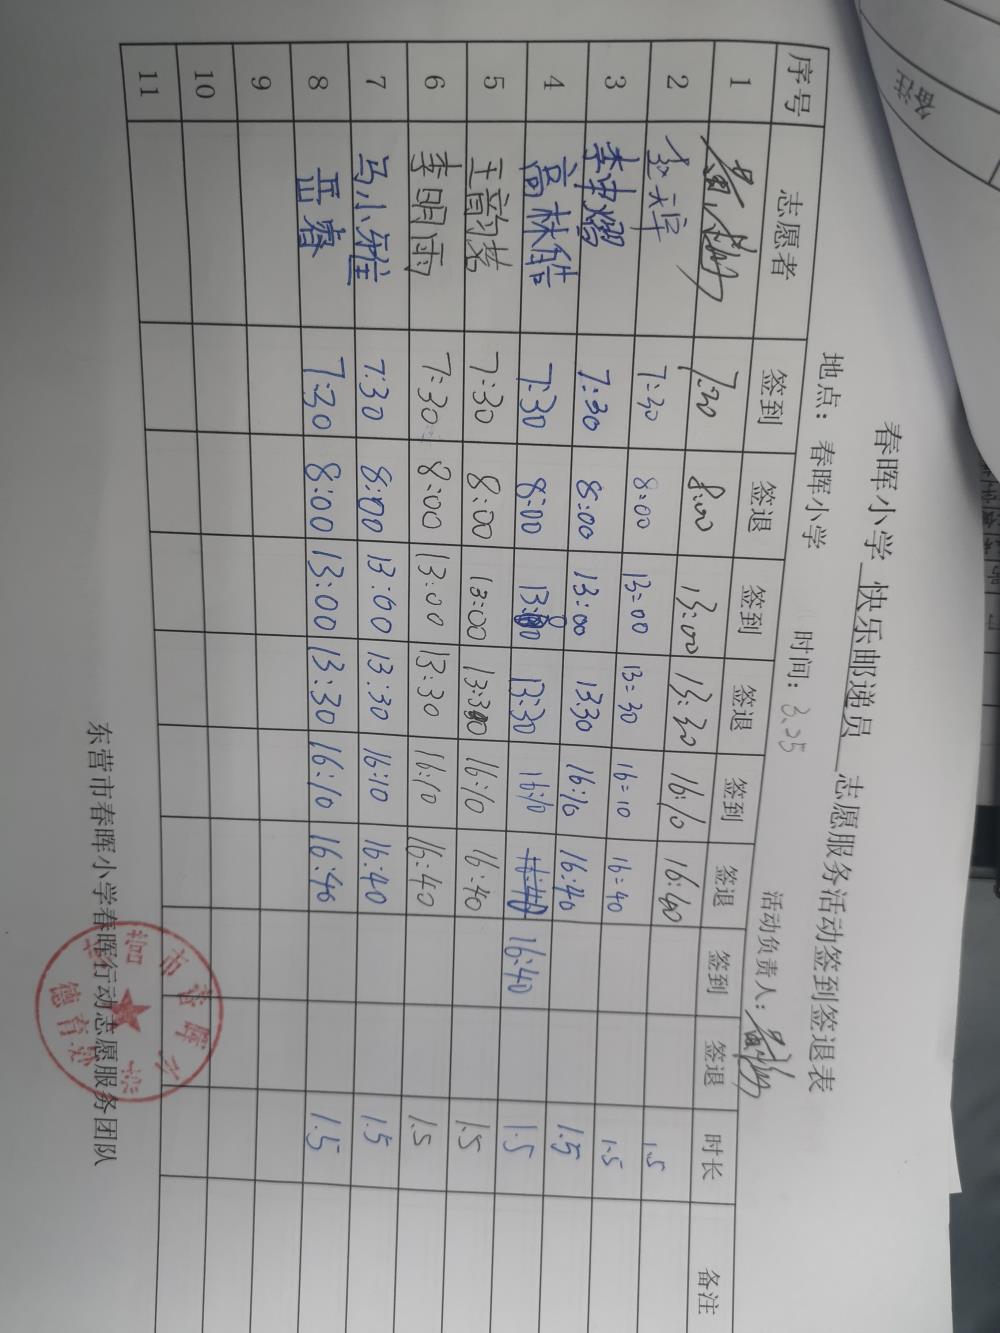 春晖小学 快乐邮递员 志愿服务活动签到签退表
地点：春晖小学 时间：3.25 活动负责人：
序号 志愿者 签到 签退 签到 签退 签到 签退 签到 签退 时长 备注
1 7:30 8:00 13:00 13:30 16:10 16:40 1.5
2 7:30 8:00 13:00 13:30 16:10 16:40 1.5
3 李申熠 7:30 8:00 13:00 13:30 16:10 16:40 1.5
4 高林皓 7:30 8:00 13:00 13:30 16:10 16:40 16:40 1.5
5 王韵茗 7:30 8:00 13:00 13:30 16:10 16:40 1.5
6 李明雨 7:30 8:00 13:00 13:30 16:10 16:40 1.5
7 马小雅 7:30 8:00 13:00 13:30 16:10 16:40 1.5
8 岳睿 7:30 8:00 13:00 13:30 16:10 16:40 1.5
9
10
11
东营市春晖小学春晖行动志愿服务团队
备注